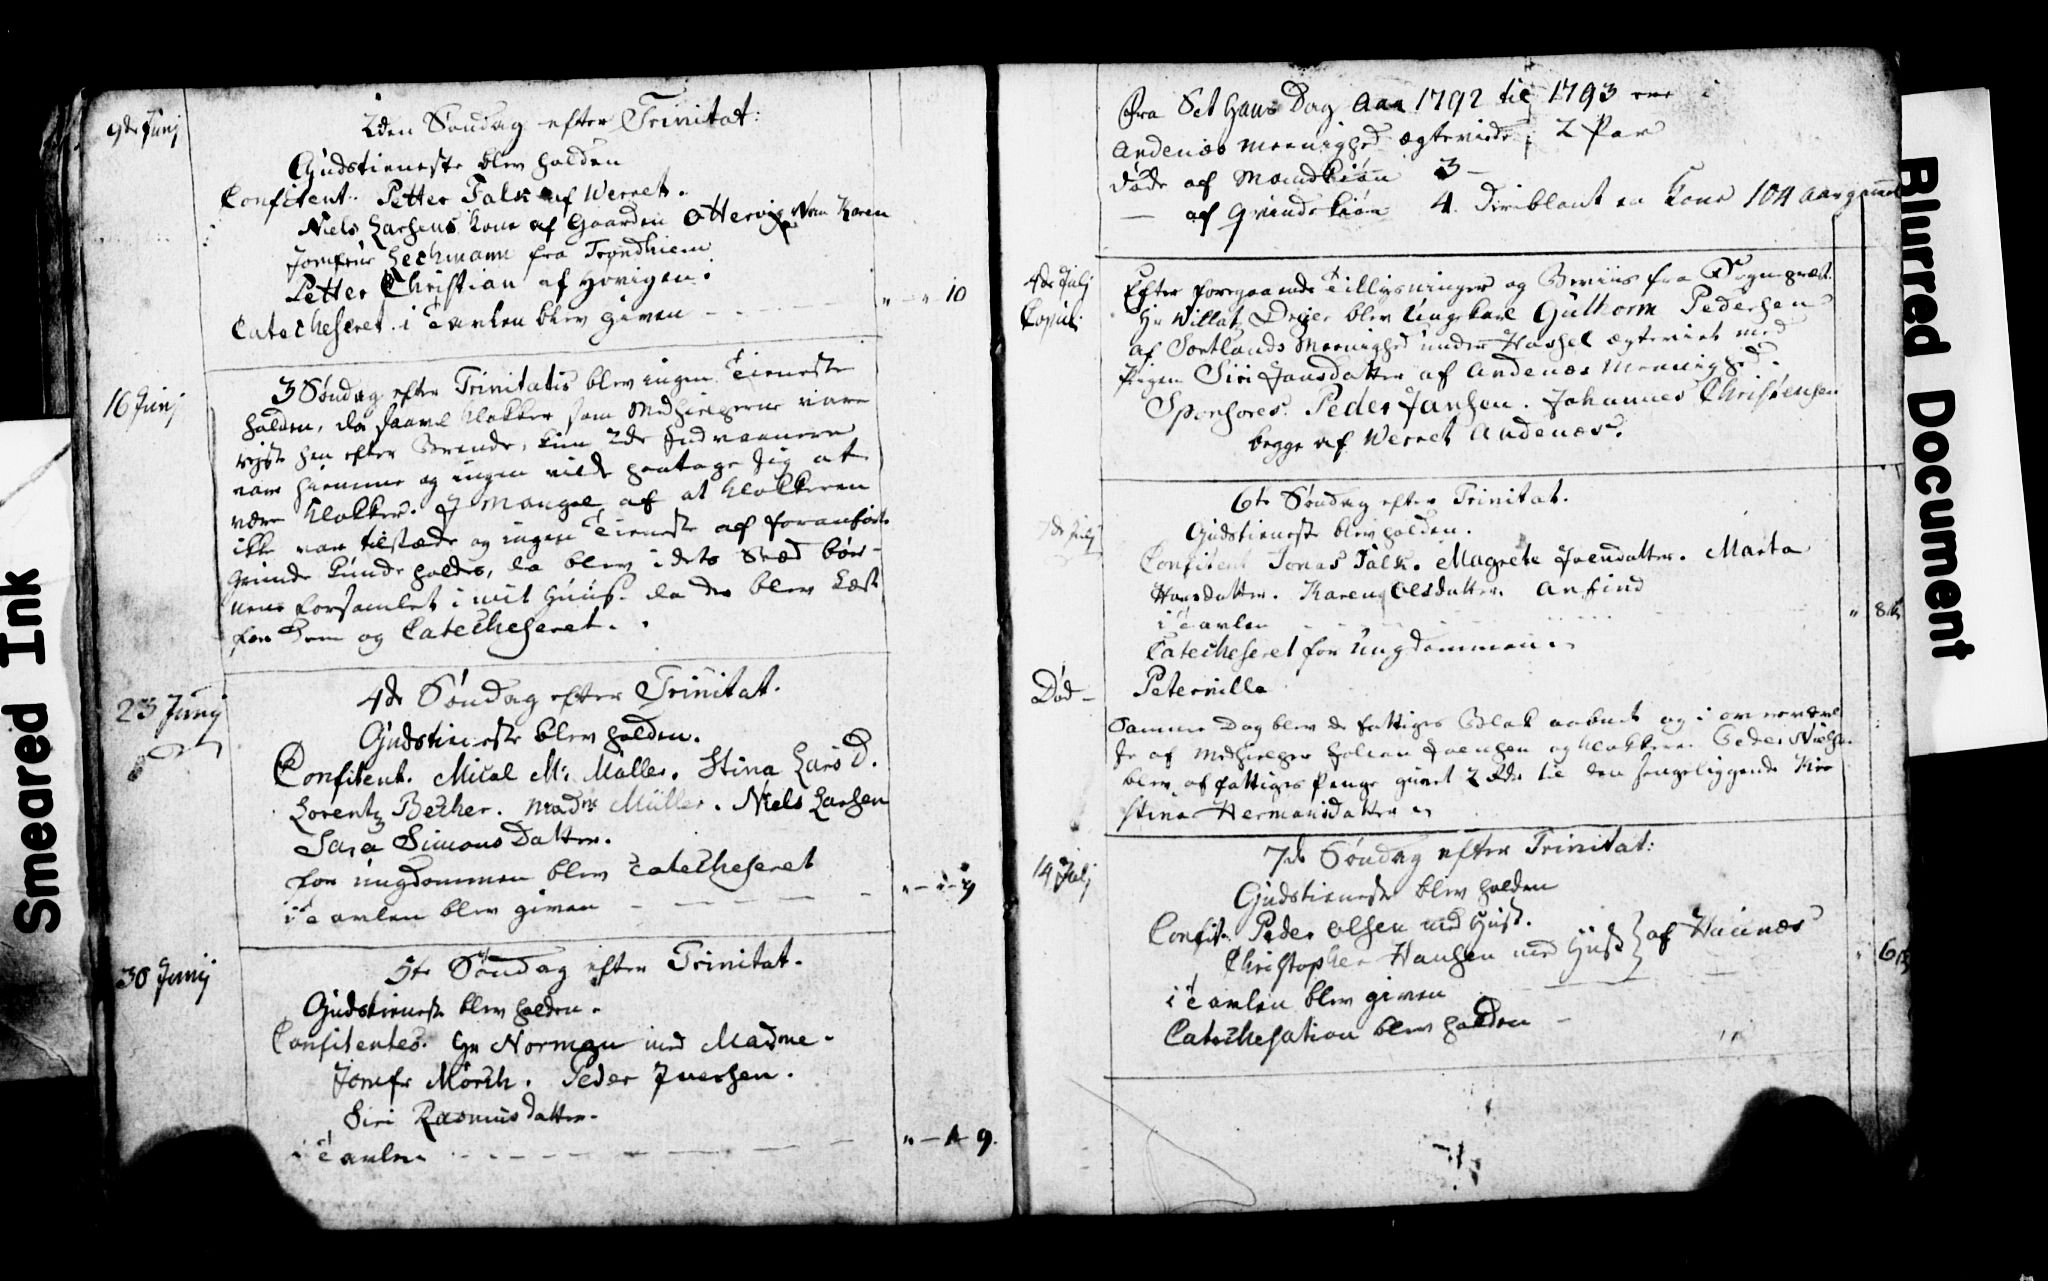 9de Junj
2den Søndag efter Trinitat:
Gudstieneste blev holden
Confitent. Petter Falk af Werret.
Niels Larsens kone af Gaarden Ottervig Karen
Jomfrue Hechmann fra Trondhiem
Petter Christian af Hovigen.
Catecheseret. i Tavlen blev given - - - " - " 10
16 Junj
3 Søndag efter Trinitatis blev ingen Tieneste
holden, da saavel klokker som Medhielperne vare
rejst hen efter Brende, kun 2de Indvaanere
var hiemme og ingen vilde paatage sig at
være klokker. I Mangel af at klokkeren
ikke var tilstæde og ingen Tieneste af foranførte
grunde kunde holdes, da blev i dets Sted bør-
nene forsamlet i mit Huus. da der blev Læst
for Dem og Catecheseret.
23 Junj
4de Søndag efter Trinitat.
Gudstieneste blev holden.
Confitent. Mical Møller. Stina Lars D.
Lorentz Becher. Madme Müller. Niels Larsen
Sara Simons Datter.
for ungdommen blev Catecheseret
i Tavlen blev given - - - - -
30 Junij
5te Søndag efter Trinitat.
Gudstieneste blev holden.
Confitentes. Hr Norman med Madme.
Jomfr Mörch. Peder Iversen.
Siri Rasmusdatter.
i Tavlen - - - - - - " - 1 - 9.
Fra Sct Hans Dag Aar 1792 til 1793 ere i
Andenæs Meenighed ægteviede 2 Par
døde af Mandkiøn 3 -
— af Qvindekiøn 4. Deriblant en kone 104 aar gammel
4de Julj
Copul:
Efter foregaaende Tillysninger og Beviis fra Sogneprest.
Hr Willatz Dreier blev Ungekarl Guttorm Pedersen
af Sortlands Meenighed under Hassel ægteviet med
Pigen Siri Jansdatter af Andenæs Meenighed.
Sponsores. Peder Jansen. Johannes Christensen
begge af Werret Andenæs.
7de Julj
6te Søndag efter Trinitat.
Gudstieneste blev holden.
Confitent Jonas Falk. Magrete Joensdatter. Marta
Hansdatter. Karen Olsdatter. Anfind
i Tavlen - - - - " 8
Catecheseret for Ungdommen
Død - Peternilla
Samme Dag blev de fattiges Blok aabnet og i overvæ-
se af Medhielper Joensen og klokker Peder Nielsen
blev af fattiges Penge givet 2 til den sengeliggende Kir
stina Hermansdatter
14 Julj
7de Søndag efter Trinitat:
Gudstieneste blev holden
Confit. Peder Olsen med Hust.
Christopher Hansen med Hust } af Haunæs
i Tavlen blev given — — " 6
Catechesation blev holden -
Smeared Ink
Blurred Document